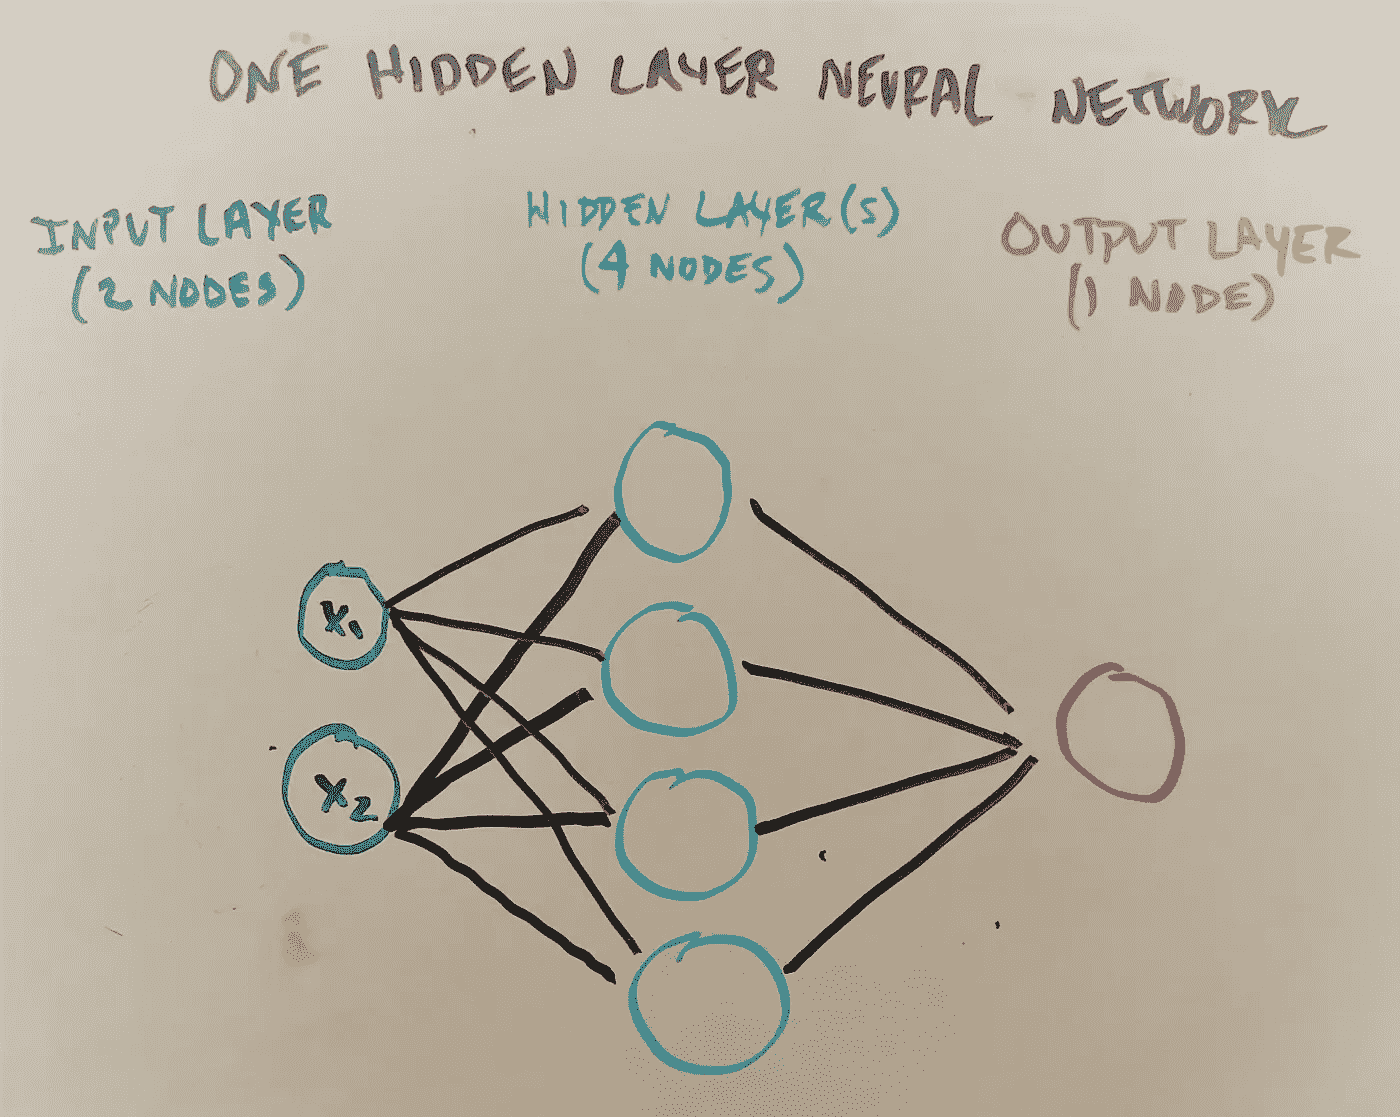 ONE HIDDEN LAYER NEURAL NETWORK
INPUT LAYER
(2 NODES)
HIDDEN LAYER(S)
(4 NODES)
OUTPUT LAYER
(1 NODE)
X1
X2